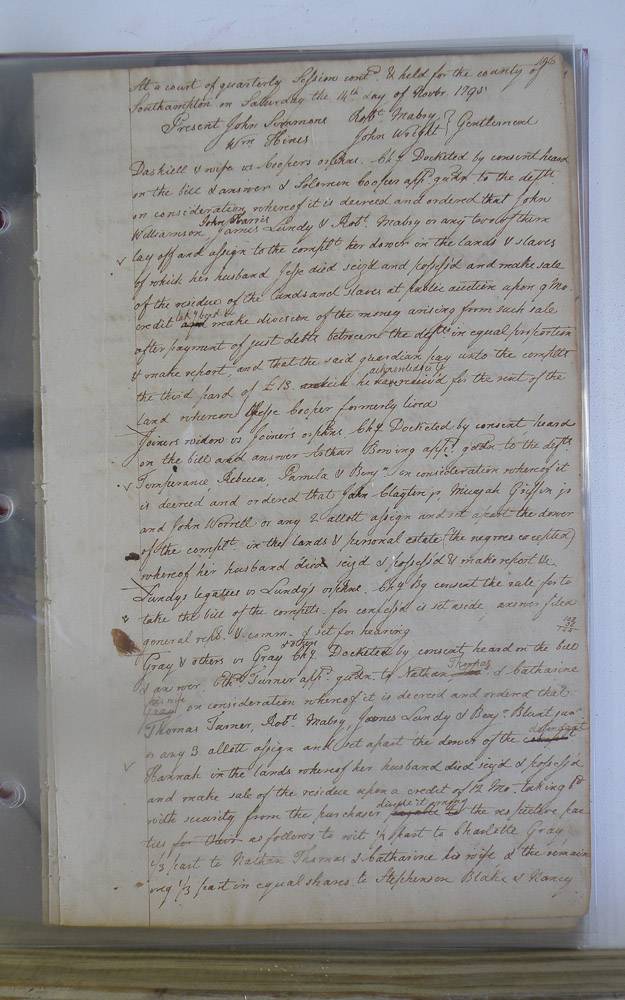 196
At a court of quarterly Session contd. & held for the county of
Southampton on Satturday the 14th day of Novbr 1795
Present John Simmons Robt. Mabry
Wm Hines John Wright } Gentlemen
Dashiell & wife vs Coopers orphns. Chy Docketed by consent heard
on the bill & answer & Solomon Cooper appd. gudn. to the defts.
on consideration whereof it is decreed and ordered that John
John Barns
Williamson James Lundy & Robt. Mabry or any two of them
lay off and assign to the complt. her dower in the lands & slaves
of which her husband Jesse died seiz'd and possess'd and make sale
of the residue of the lands and slaves at public auction upon 9 Mo.
credit make division of the money arising form such sale
after payment of just debts between the defts. in equal proportion
& make report and that the said guardian pay unto the complts
the third part of £18 which he for the rent of the
land whereon Jesse Cooper formerly lived
Joiners widow vs Joiners orphns. Chy Docketed by consent heard
on the bill and answer Arthur Bowing appd. gudn. to the defts.
Temperance Rebecca, Pamela & Benjn. on consideration whereof it
is decreed and ordered that John Clayton jr, Griffin jr
and John Worrell or any 2 allott assign and set apart the dower
of the complt. in the lands & personal estate (the negroes excepted)
whereof her husband died seiz'd & possess'd & make report &c
Lundys legatees vs Lundy's orphns. Chy By consent the rule for to
take the bill of the complts. for confess'd is set aside, answer filed
general repln. & comm. & set for hearing
& others
Gray & others vs Gray Chy Docketed by consent heard on the bill
& answer. Turner appd. gudn. to Nathan Thomas & Catharine
his wife on consideration whereof it is decreed and ordered that
Thomas Turner, Robt. Mabry, James Lundy & Benjn. Blunt junr
or any 3 allott assign and set apart the dower of the defendant
Hannah in the lands whereof her husband died seiz'd & possess'd
and make sale of the residue upon a credit of 12 Mo. taking bd
with security from the purchaser the respective par
ties as follows to wit 1/3 part to Charlotte Gray
1/3 part to Nathan Thomas & Catharine his wife & the remain
ing 1/3 part in equal shares to Stephenson Blake & Nancy